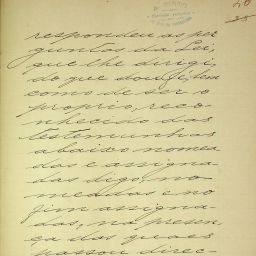 respondeu as per
guntas da Lei,
que lhe dirigi,
do que dou fé, bem
como de ser o
proprio, reco-
nhecido das
testemunhas
abaixo nomea
das e assigna
das digo, no
meadas e no
fim assigna-
das, na presen
ça das quaes
passou direc-